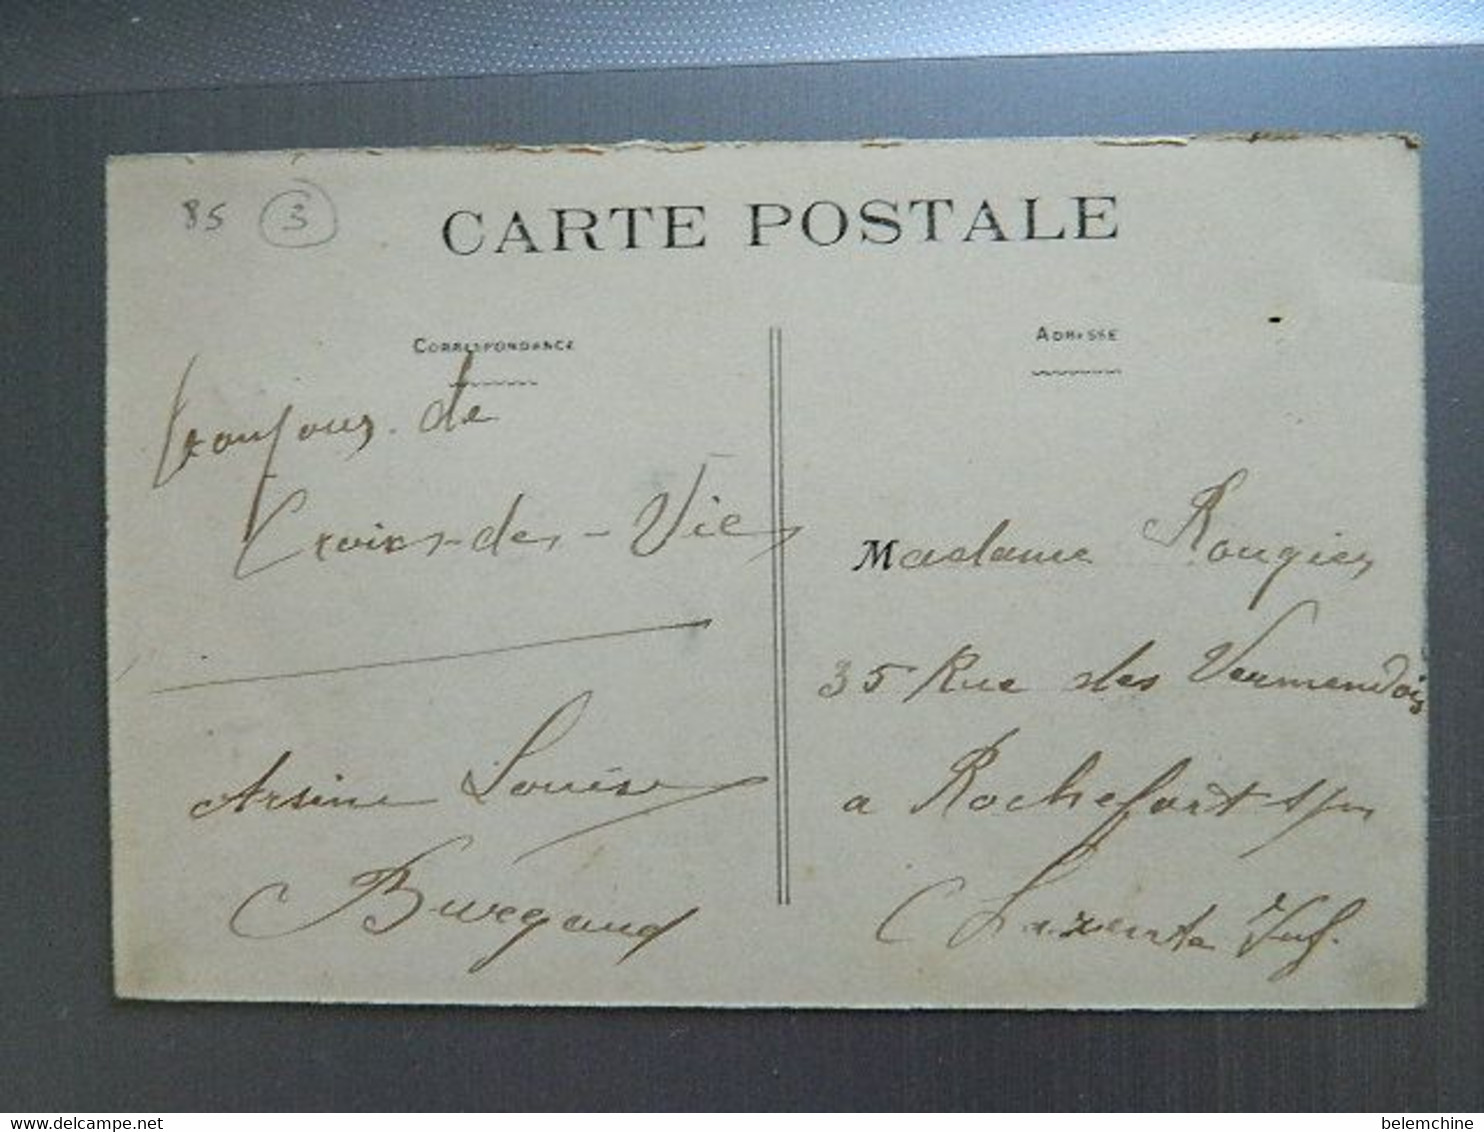 85 3
CARTE POSTALE
CORRESPONDANCE
toujours de
Croix-des-Vies
Arsène Louise
Burgaud
ADRESSE
Madame Rougier
35 Rue des Vermendois
a Rochefort s/m
Charente Inf.
delcampe.net
belemchine